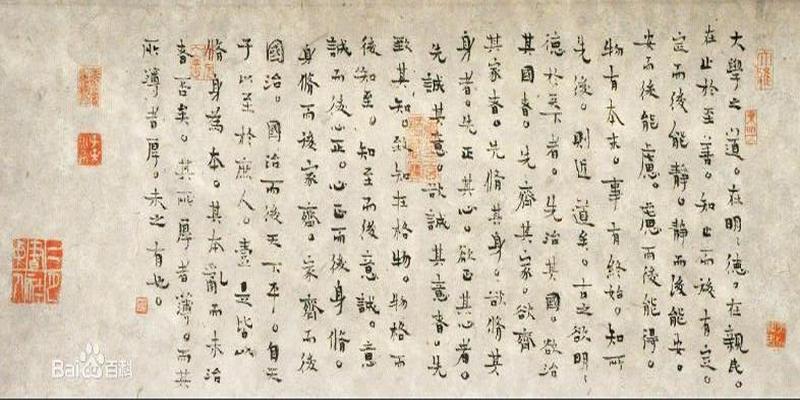 大學之道。在明〻德。在親民。
在止於至善。知止而後有定。
定而後能靜。靜而後能安。
安而後能慮。慮而後能得。
物有本末。事有終始。知所
先後。則近道矣。古之欲明〻
德於天下者。先治其國。欲治
其國者。先齊其家。欲齊
其家者。先脩其身。欲脩其
身者。先正其心。欲正其心者。
先誠其意。欲誠其意者。先
致其知。致知在格物。物格而
後知至。知至而後意誠。意
誠而後心正。心正而後身脩。
身脩而後家齊。家齊而後
國治。國治而後天下平。自天
子以至於庶人。壹是皆以
脩身為本。其本亂而末治
者否矣。其所厚者薄。而其
所薄者厚。未之有也。
Bai百科